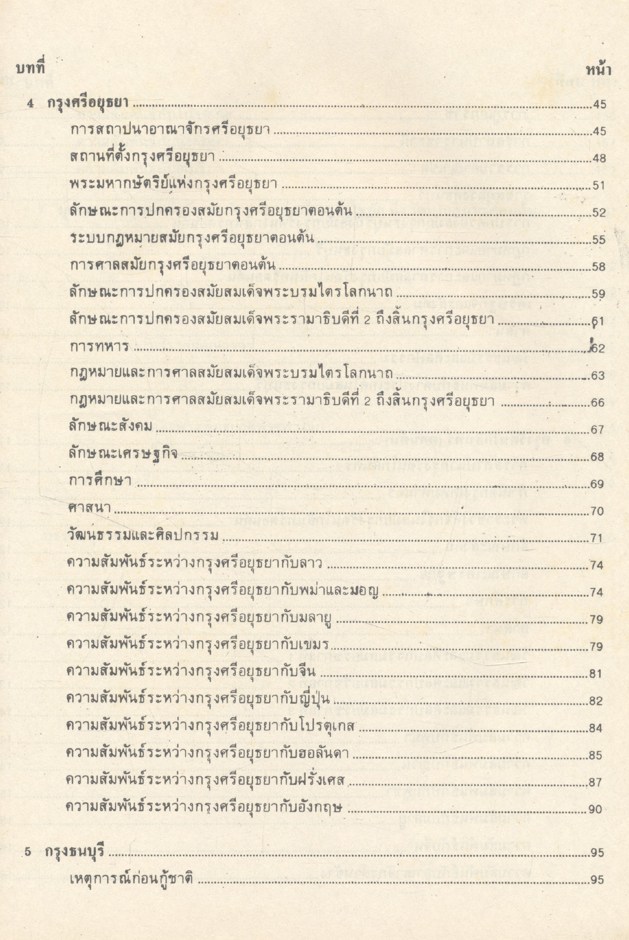 บทที่ หน้า
4 กรุงศรีอยุธยา ........ 45
การสถาปนาอาณาจักรศรีอยุธยา ........ 45
สถานที่ตั้งกรุงศรีอยุธยา ........ 48
พระมหากษัตริย์แห่งกรุงศรีอยุธยา ........ 51
ลักษณะการปกครองสมัยกรุงศรีอยุธยาตอนต้น ........ 52
ระบบกฎหมายสมัยกรุงศรีอยุธยาตอนต้น ........ 55
การศาลสมัยกรุงศรีอยุธยาตอนต้น ........ 58
ลักษณะการปกครองสมัยสมเด็จพระบรมไตรโลกนาถ ........ 59
ลักษณะการปกครองสมัยสมเด็จพระรามาธิบดีที่ 2 ถึงสิ้นกรุงศรีอยุธยา ........ 61
การทหาร ........ 62
กฎหมายและการศาลสมัยสมเด็จพระบรมไตรโลกนาถ ........ 63
กฎหมายและการศาลสมัยสมเด็จพระรามาธิบดีที่ 2 ถึงสิ้นกรุงศรีอยุธยา ........ 66
ลักษณะสังคม ........ 67
ลักษณะเศรษฐกิจ ........ 68
การศึกษา ........ 69
ศาสนา ........ 70
วัฒนธรรมและศิลปกรรม ........ 71
ความสัมพันธ์ระหว่างกรุงศรีอยุธยากับลาว ........ 74
ความสัมพันธ์ระหว่างกรุงศรีอยุธยากับพม่าและมอญ ........ 74
ความสัมพันธ์ระหว่างกรุงศรีอยุธยากับมลายู ........ 79
ความสัมพันธ์ระหว่างกรุงศรีอยุธยากับเขมร ........ 79
ความสัมพันธ์ระหว่างกรุงศรีอยุธยากับจีน ........ 81
ความสัมพันธ์ระหว่างกรุงศรีอยุธยากับญี่ปุ่น ........ 82
ความสัมพันธ์ระหว่างกรุงศรีอยุธยากับโปรตุเกส ........ 84
ความสัมพันธ์ระหว่างกรุงศรีอยุธยากับฮอลันดา ........ 85
ความสัมพันธ์ระหว่างกรุงศรีอยุธยากับฝรั่งเศส ........ 87
ความสัมพันธ์ระหว่างกรุงศรีอยุธยากับอังกฤษ ........ 90
5 กรุงธนบุรี ........ 95
เหตุการณ์ก่อนกู้ชาติ ........ 95